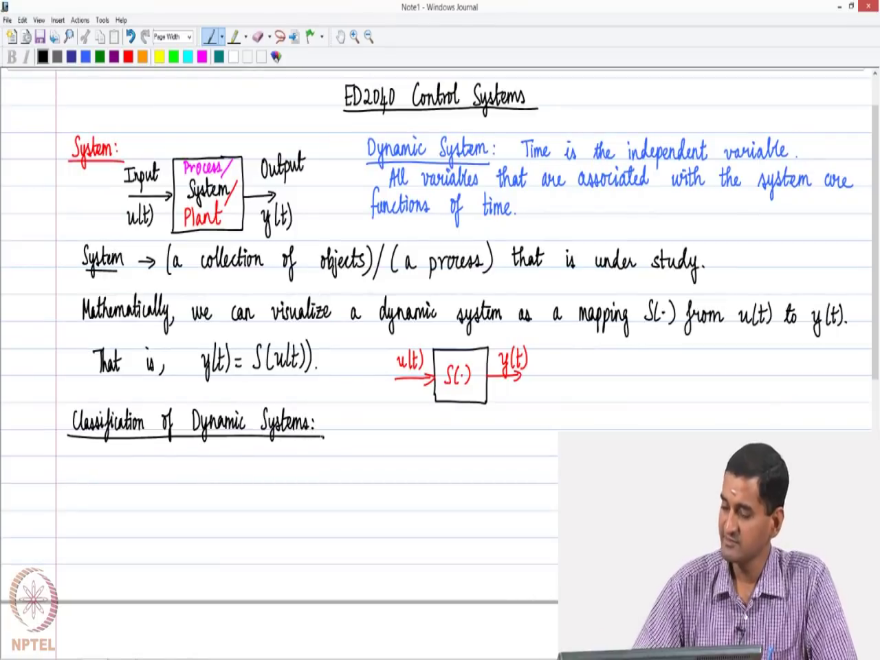 Note1 - Windows Journal
File Edit View Insert Actions Tools Help
Page Width
B I
ED2040 Control Systems
System:
Input
u(t)
Process/
System/
Plant
Output
y(t)
Dynamic System: Time is the independent variable.
All variables that are associated with the system are
functions of time.
System → (a collection of objects)/(a process) that is under study.
Mathematically, we can visualize a dynamic system as a mapping S(·) from u(t) to y(t).
That is, y(t) = S(u(t)).
u(t) S(·) y(t)
Classification of Dynamic Systems:
NPTEL